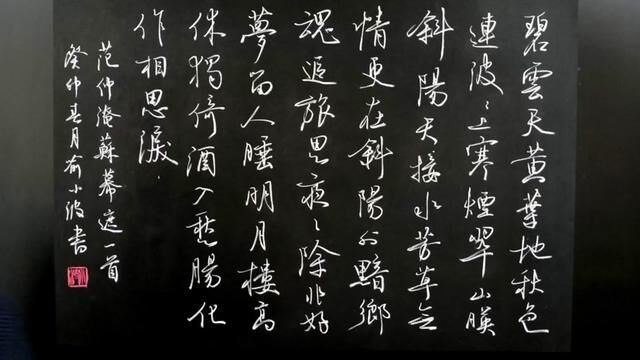 碧雲天黃葉地秋色
連波〻上寒煙翠山映
斜陽天接水芳草無
情更在斜陽外黯鄉
魂追旅思夜〻除非好
夢留人睡明月樓高
休獨倚酒入愁腸化
作相思淚
范仲淹蘇幕遮一首
癸卯春月俞小波書